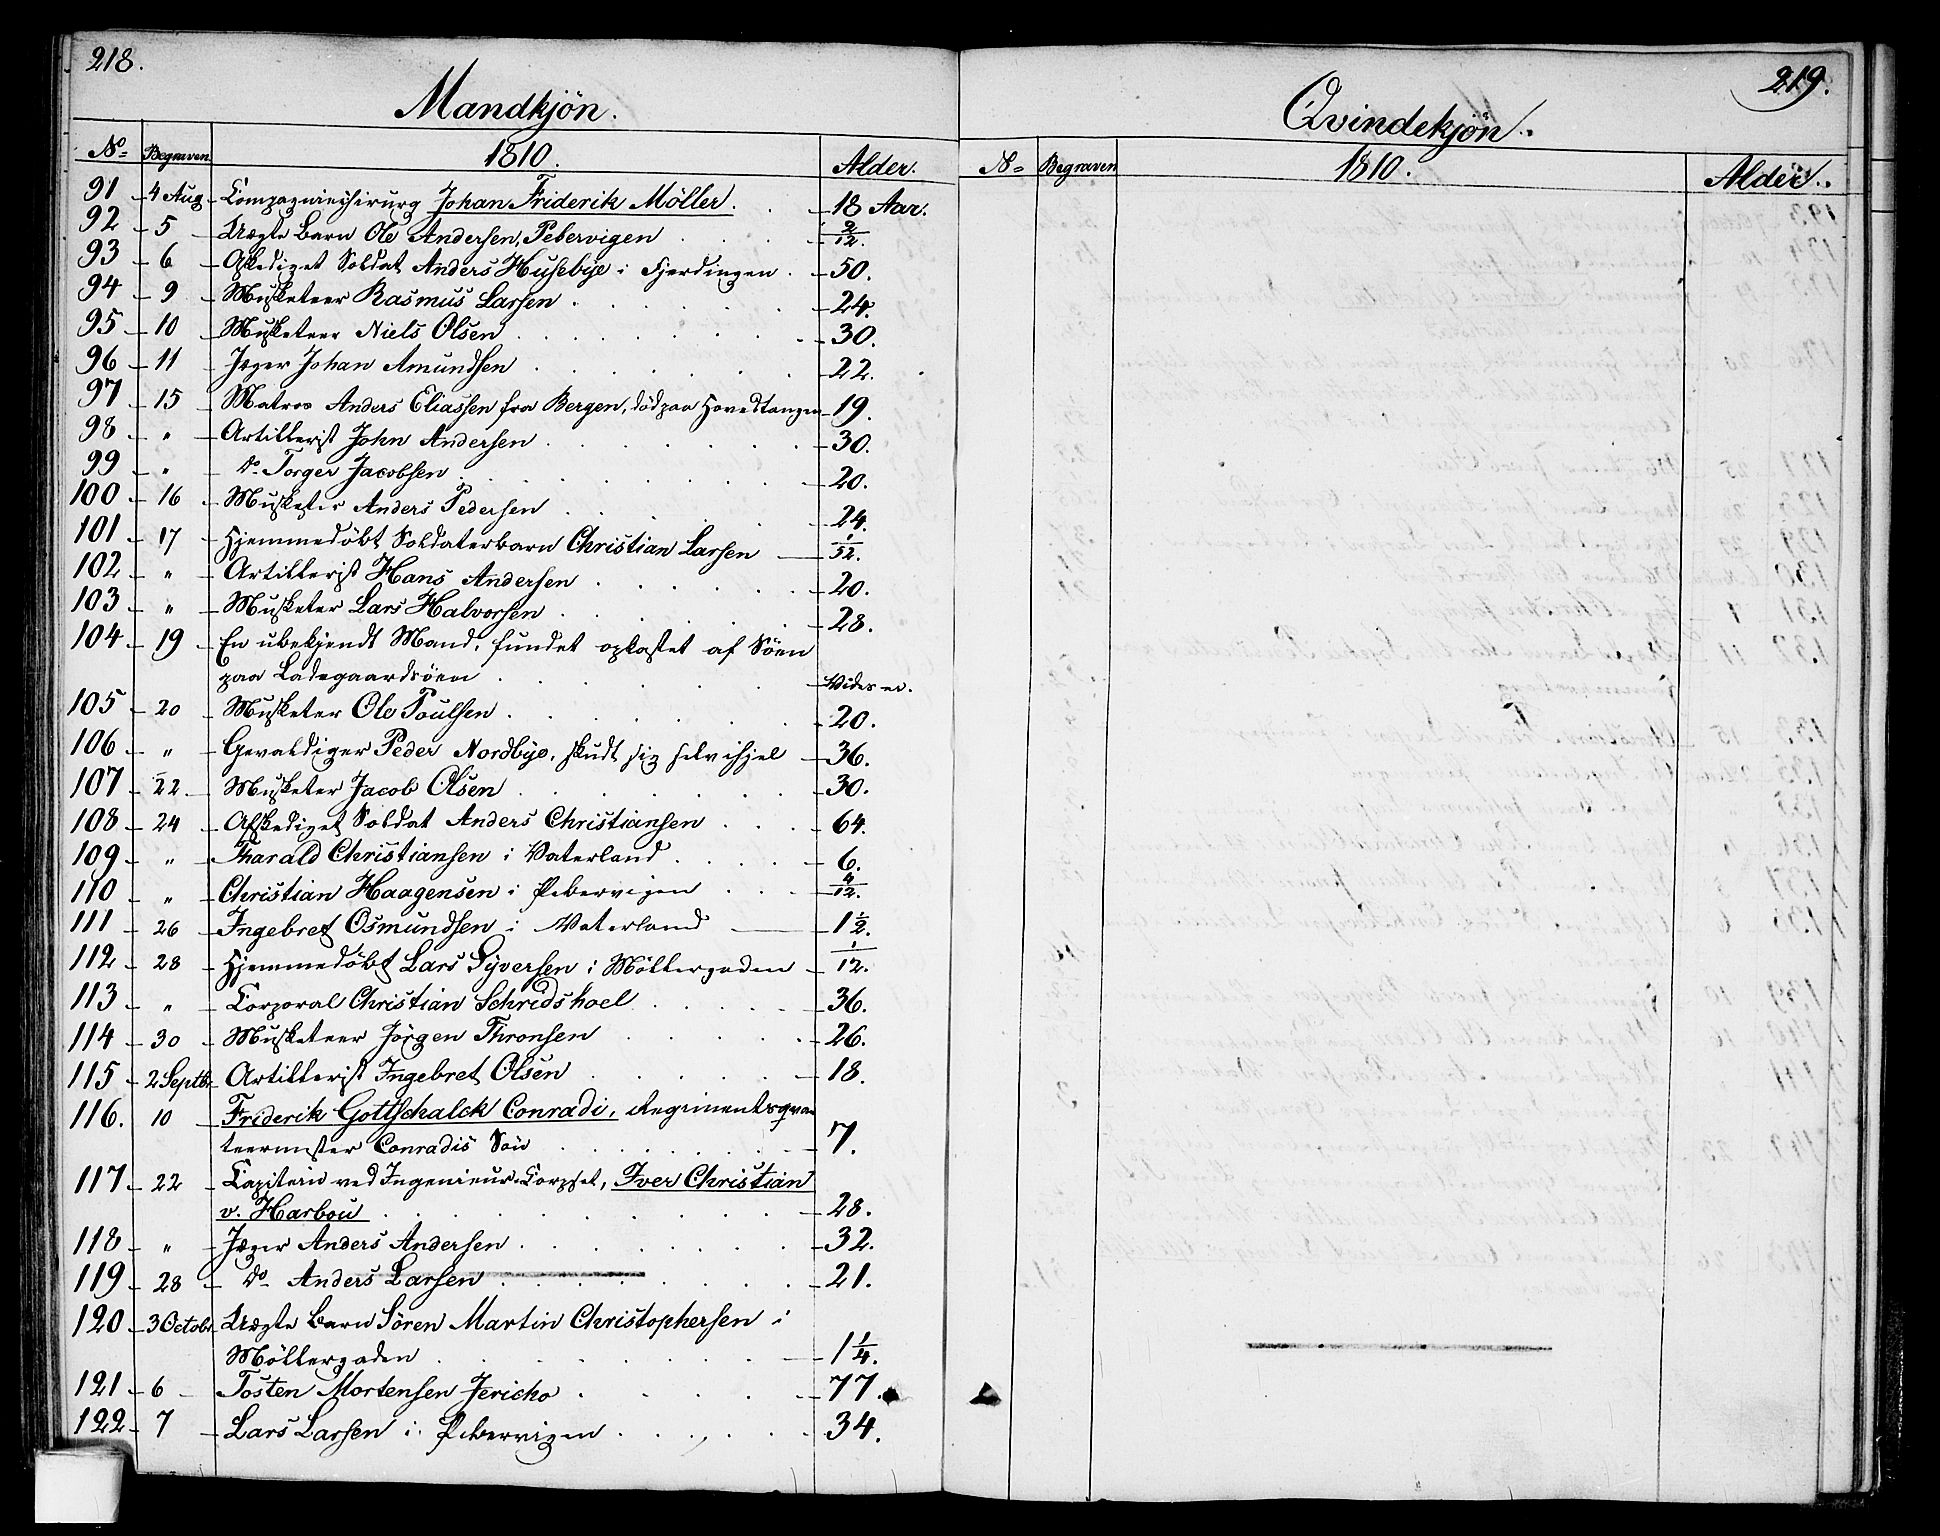 218.
Mandkjön.
No Begraven 1810. Alder.
91 4 Aug Compagniechirurg Johan Friderik Möller. 18 Aar.
92 5 Uægte Barn Ole Andersen, Pebervigen 9/12.
93 6 Afskediget Soldat Anders Husebye i Fjerdingen 50.
94 9 Musketeer Rasmus Larsen 24.
95 10 Musketeer Niels Olsen 30.
96 11 Jæger Johan Amundsen 22.
97 15 Matros Anders Eliassen fra Bergen, död paa Hovedtangen 19.
98 " Artillerist John Andersen 30.
99 " do Torger Jacobsen 20.
100 16 Musketer Anders Pedersen 24.
101 17 Hjemmedöbt Soldaterbarn Christian Larsen 1/52.
102 " Artillerist Hans Andersen 20.
103 " Musketer Lars Halvorsen 28.
104 19 En ubekjendt Mand, fundet opkastet af Söen
paa Ladegaardsöen Vides ei.
105 20 Musketer Ole Poulsen 20.
106 " Gevaldiger Peder Nordbye, skudt sig selv ihjel 36.
107 22 Musketer Jacob Olsen 30.
108 24 Afskediget Soldat Anders Christiansen 64.
109 " Tharald Christiansen i Vaterland 6.
110 " Christian Haagensen i Pebervigen 4/12.
111 26 Ingebret Osmundsen i Vaterland 1 1/2.
112 28 Hjemmedöbt Lars Syversen i Möllergaden 1/12.
113 " Corporal Christian Schridshoel 36.
114 30 Musketeer Jörgen Thronsen 26.
115 2 Septbr Artillerist Ingebret Olsen 18.
116. 10 Friderik Gottschalck Conradi, Regimentsqvar
teermester Conradis Sön 7.
117 22 Capitein ved Ingenieur-Corpset, Iver Christian
v. Harbou 28.
118 " Jæger Anders Andersen 32.
119 28 do Anders Larsen 21.
120 3 Octobr Uægte Barn Sören Martin Christophersen i
Möllergaden 1 1/4.
121 6 Tosten Mortensen Jericho 77.
122 7 Lars Larsen i Pebervigen 34.
219.
Qvindekjön.
No Begraven 1810. Alder.